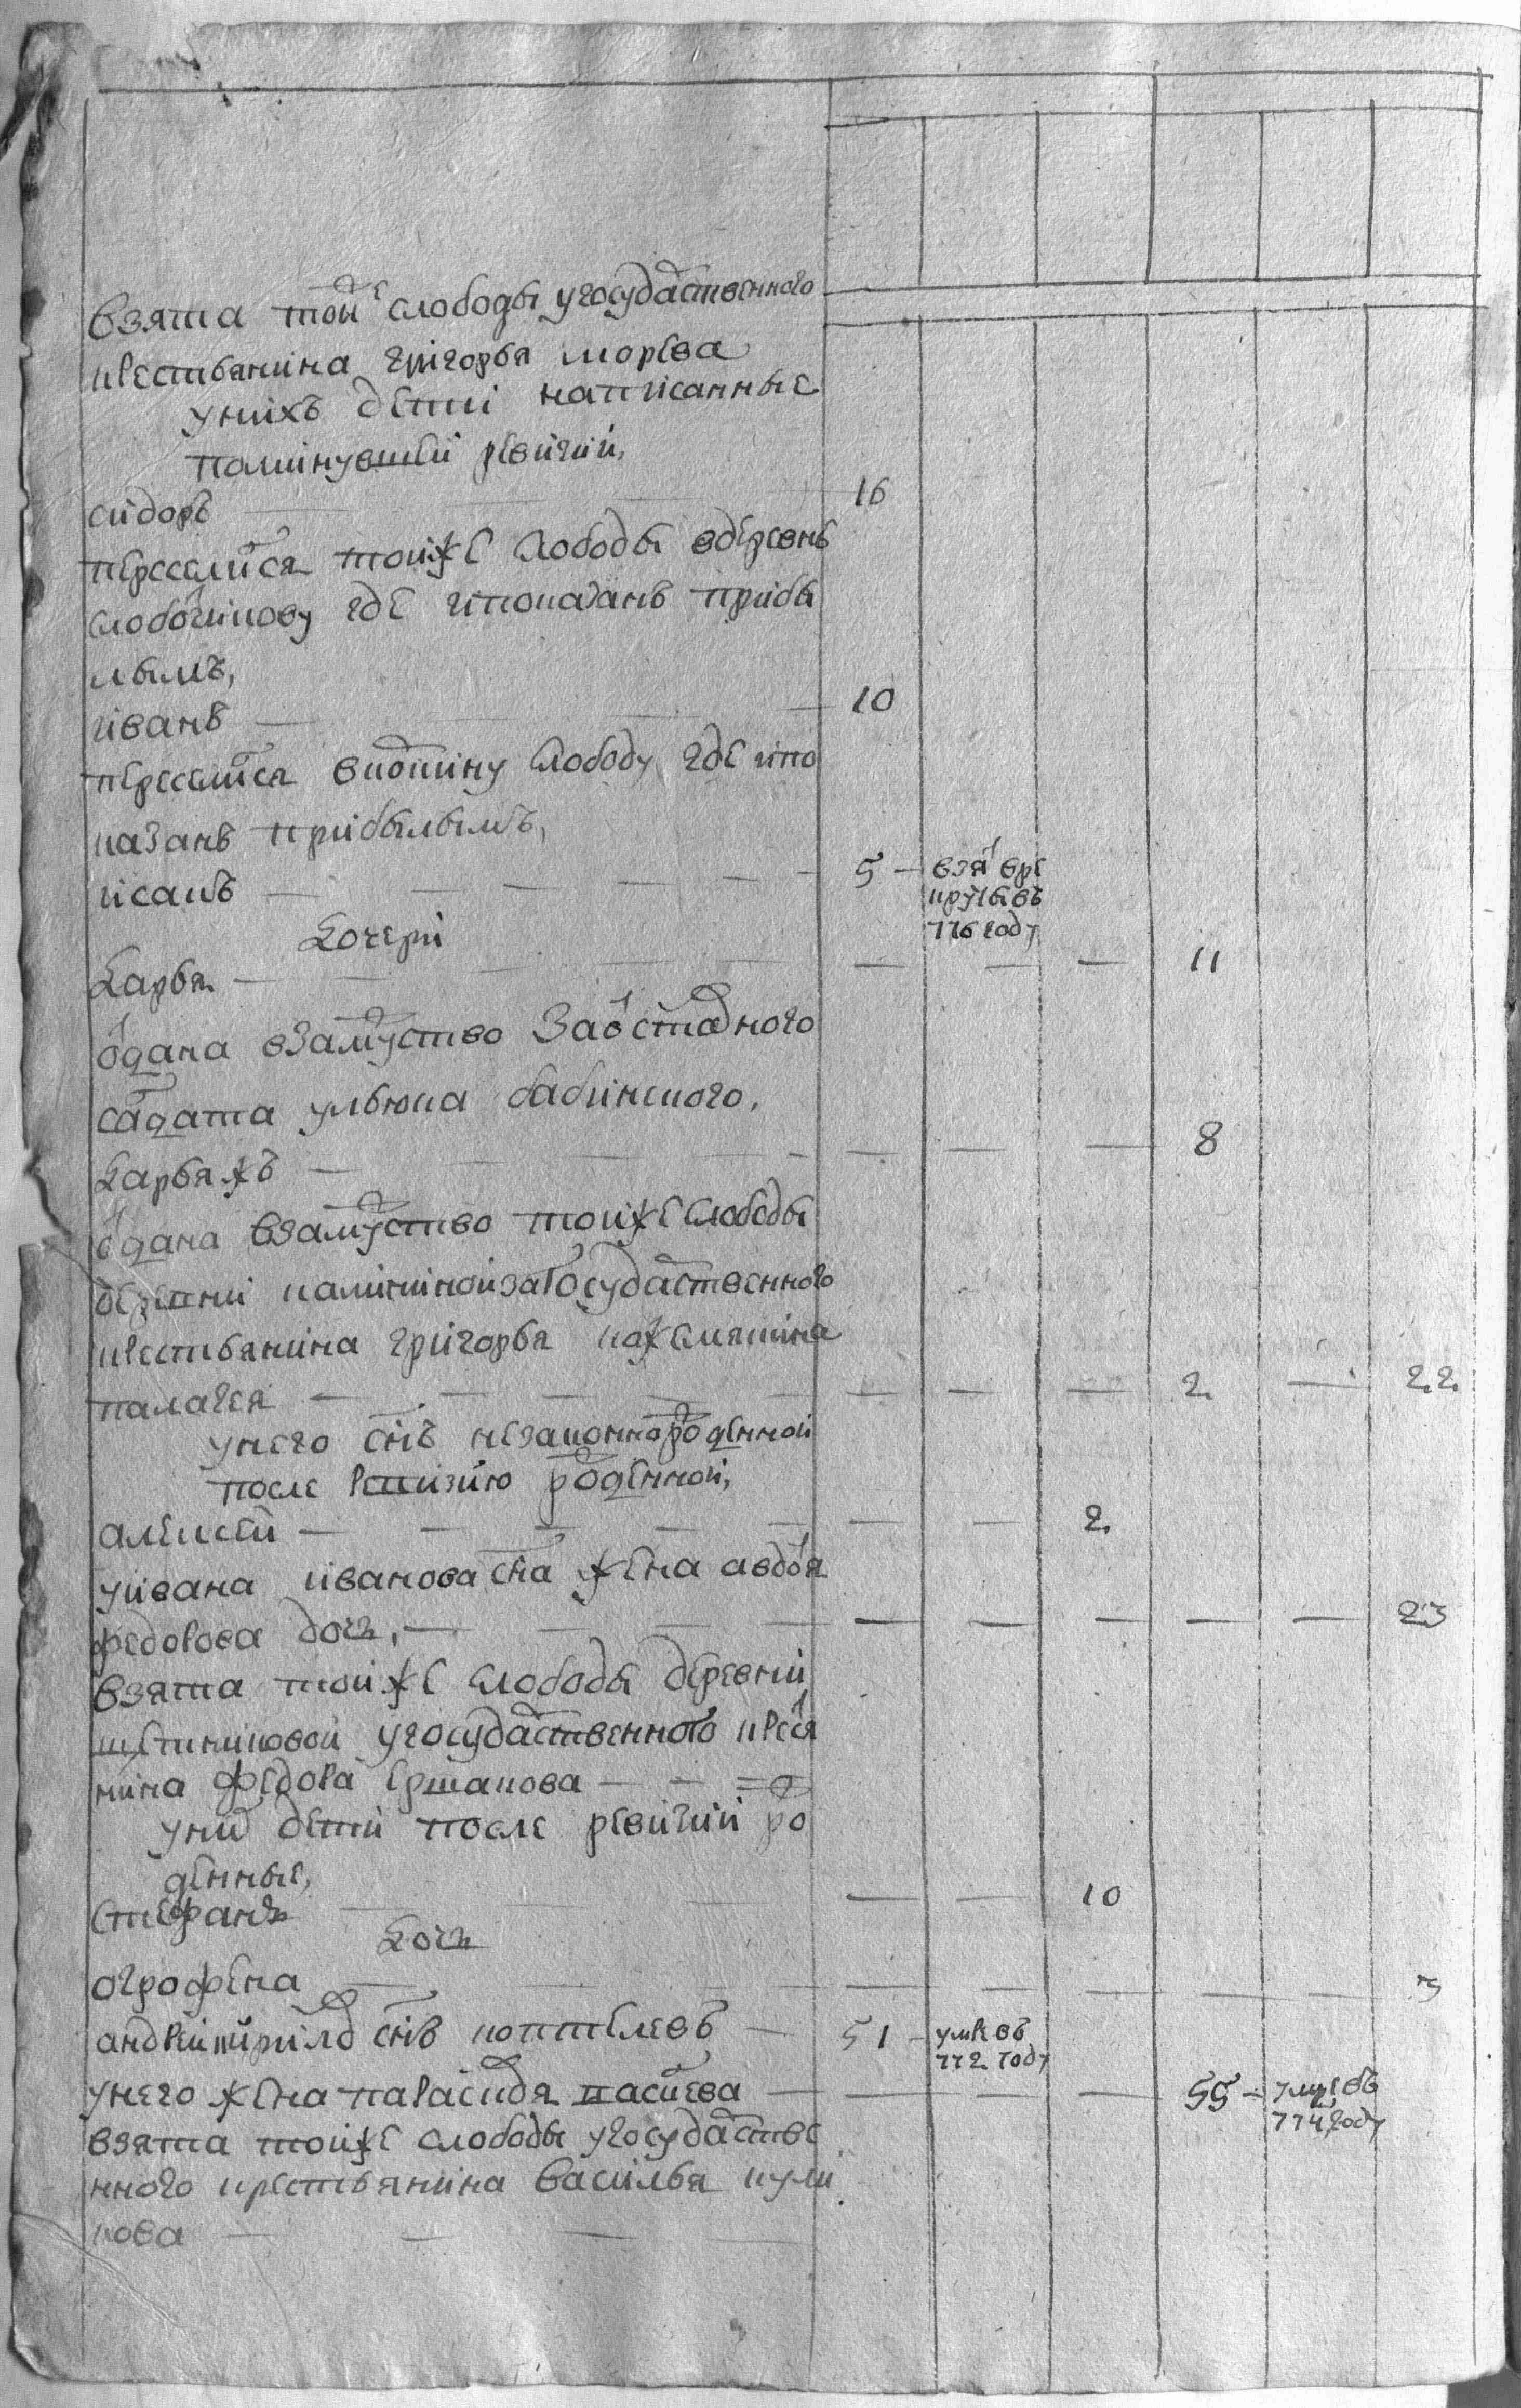 взята той же слободы у государственного
крестьянина григорья морева
у них детеи написанные
поминувшеи ревизии,
сидоръ — 16
переселился тойже слободы вдеревню
слободчикову где и показанъ прибы
лымъ,
иванъ — 10
переселился в слободу где ипо
казанъ прибылымъ,
исакъ — 5 — взят в ре
круты въ
776 году
Дочери
Дарья — — — — 11
отдана взамужство заотставного
салдата бабинского,
Дарьяжъ — — — — 8
отдана взамужство тойже слободы
деревни калининой загосударственного
крестьянина григорья кожемякина
палагея — — — — 2 — 22
у него снъ незаконнорожденной
после ревизию рожденной,
алексеи — — — 2
уивана иванова сна жена авдотя
федорова дочь, — — — — — — 23
взята тойже слободы деревни
щетниковой угосударственного крестя
нина федора ершакова — —
у них дети после ревизии ро
жденные,
стефанъ — — — 10
Дочь
огрофена — — — — — — 3
андреи кириловъ снъ коптеловъ — 51 — умре въ
772 году
унего жена парасковя — — — — 55 — умре въ
774 году
взята тойже слободы угосударстве
нного крестьянина василья кули
кова —